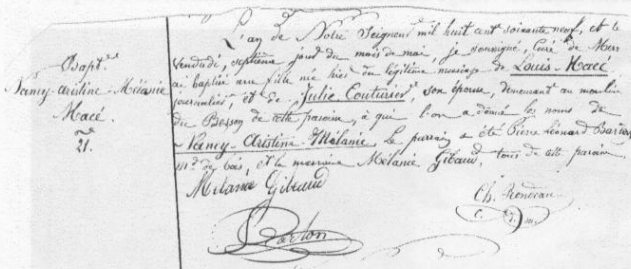 Bapt.
Nancy-Aristine-Mélanie
Macé.
21.
L'an de Notre Seigneur mil huit cent soixante neuf, et le
Vendredi, septième jour du mois de mai, je soussigné, Curé de Mers
ai baptisé une fille née hier du légitime mariage de Louis-Macé
journalier, et de Julie Couturier, son épouse, demeurant au moulin
du Besson de cette paroisse, à qui l'on a donné les noms de
Nancy-Aristine-Mélanie. Le parrain a été Pierre Léonard Barton
md de bois, et la marraine Mélanie Gibaud, tous de cette paroisse.
Mélanie Gibaud
Ch. Rondeau
Barton